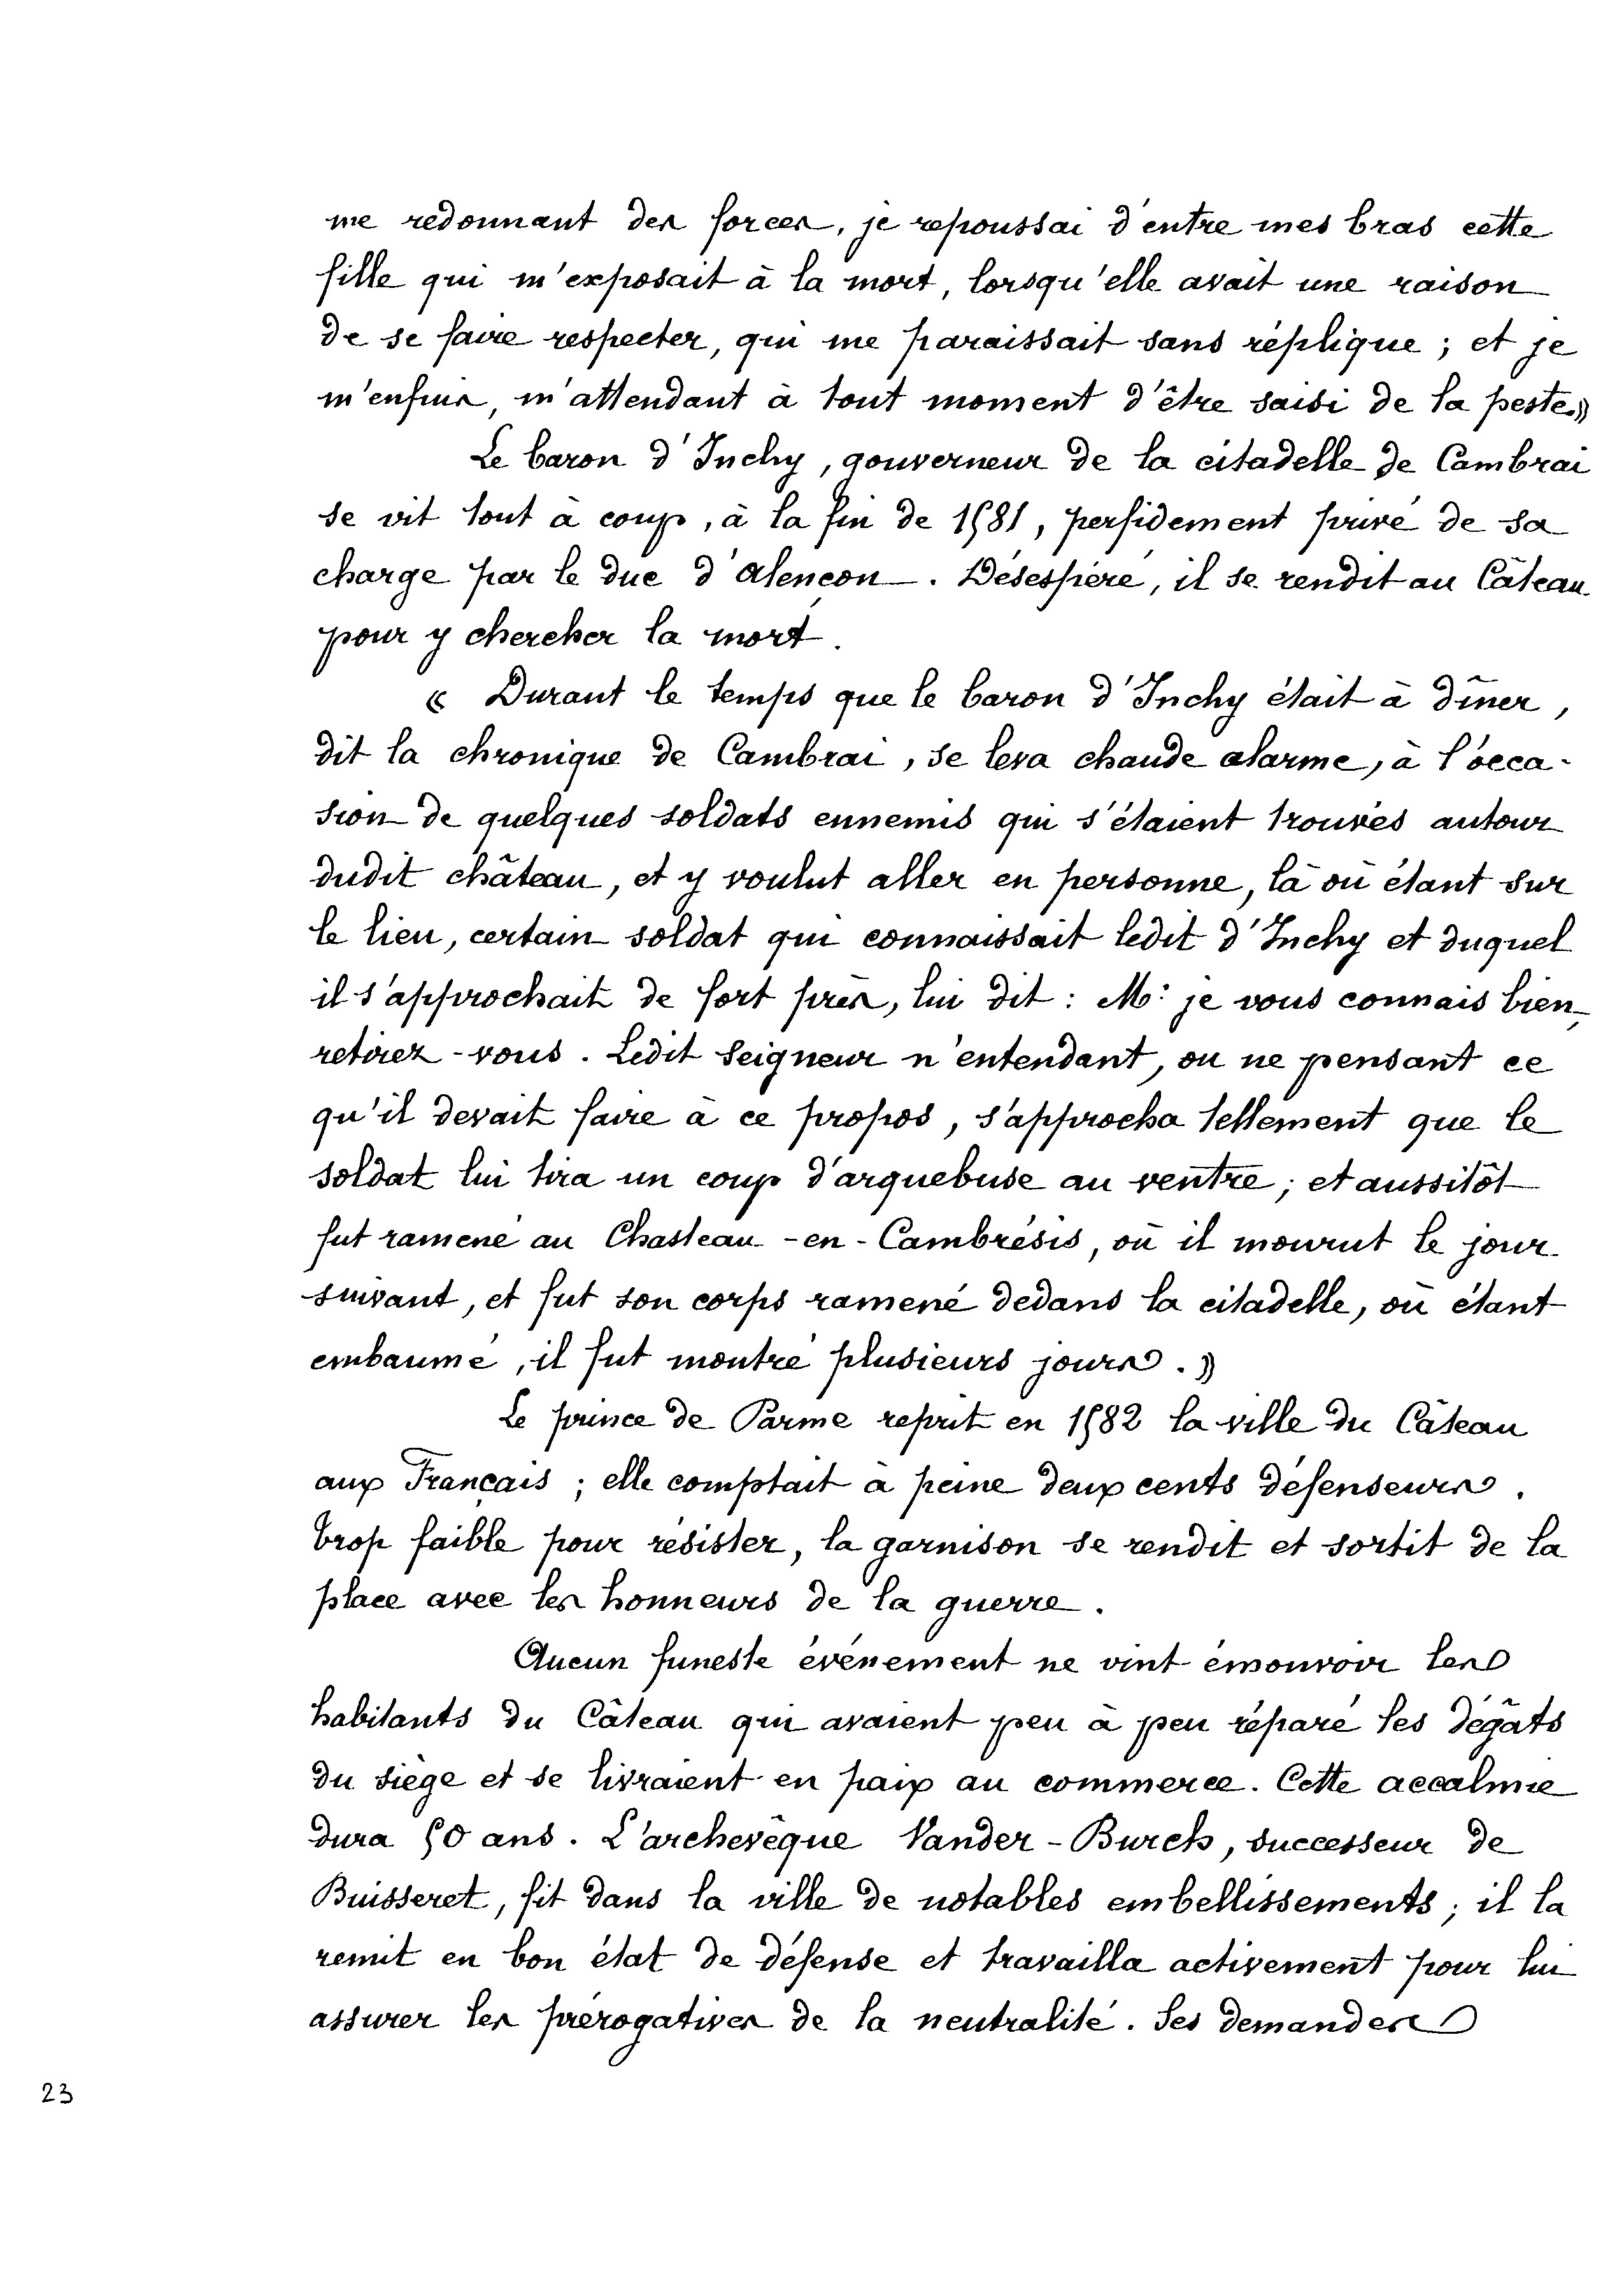 me redonnant des forces, je repoussai d'entre mes bras cette
fille qui m'exposait à la mort, lorsqu'elle avait une raison
de se faire respecter, qui me paraissait sans réplique ; et je
m'enfuis, m'attendant à tout moment d'être saisi de la peste.»
Le baron d'Inchy, gouverneur de la citadelle de Cambrai
se vit tout à coup, à la fin de 1581, perfidement privé de sa
charge par le duc d'Alençon. Désespéré, il se rendit au Câteau
pour y chercher la mort.
« Durant le temps que le baron d'Inchy était à dîner,
dit la chronique de Cambrai, se leva chaude alarme, à l'occa-
sion de quelques soldats ennemis qui s'étaient trouvés autour
dudit château, et y voulut aller en personne, là où étant sur
le lieu, certain soldat qui connaissait ledit d'Inchy et duquel
il s'approchait de fort près, lui dit : Mr je vous connais bien,
retirez-vous. Ledit Seigneur n'entendant, ou ne pensant ce
qu'il devait faire à ce propos, s'approcha tellement que le
soldat lui tira un coup d'arquebuse au ventre ; et aussitôt
fut ramené au Chasteau-en-Cambrésis, où il mourut le jour
suivant, et fut son corps ramené dedans la citadelle, où étant
embaumé, il fut montré plusieurs jours.»
Le prince de Parme reprit en 1582 la ville du Câteau
aux Français ; elle comptait à peine deux cents défenseurs.
Trop faible pour résister, la garnison se rendit et sortit de la
place avec les honneurs de la guerre.
Aucun funeste événement ne vint émouvoir les
habitants du Câteau qui avaient peu à peu réparé les dégâts
du siège et se livraient en paix au commerce. Cette accalmie
dura 50 ans. L'archevêque Vander-Burch, successeur de
Buisseret, fit dans la ville de notables embellissements ; il la
remit en bon état de défense et travailla activement pour lui
assurer les prérogatives de la neutralité. Ses demandes
23